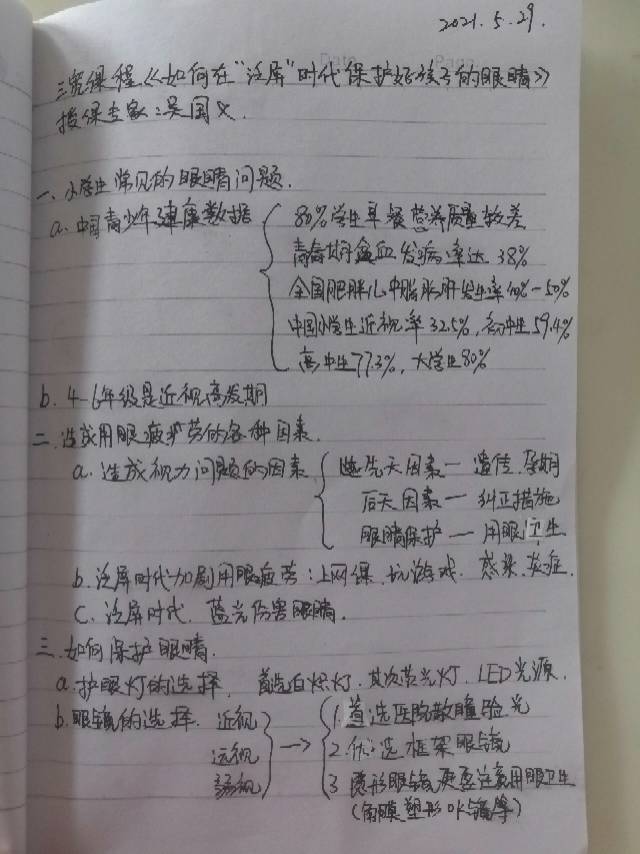 2021.5.29.
三宽课程《如何在"泛屏"时代保护好孩子的眼睛》
授课专家:吴国
一、小学生常见的眼睛问题.
a.中国青少年健康数据
80%学生早餐营养质量较差
青春期贫血发病率达38%
全国肥胖儿中脂肪肝发生率40%-50%
中国小学生近视率32.5%,初中生59.4%
高中生77.3%,大学生80%
b.4-6年级是近视高发期
二.造成用眼疲劳的各种因素.
a.造成视力问题的因素
先天因素—遗传.孕期
后天因素—纠正措施
眼睛保护—用眼卫生
b.泛屏时代加剧用眼疲劳:上网课.玩游戏.感染.炎症.
C.泛屏时代.蓝光伤害眼睛.
三.如何保护眼睛.
a.护眼灯的选择,首选白炽灯.其次荧光灯.LED光源.
b.眼镜的选择.
近视
远视
弱视
1.首选医院散瞳验光
2.优选框架眼镜
3隐形眼镜更要注意用眼卫生
(角膜塑形OK镜等)